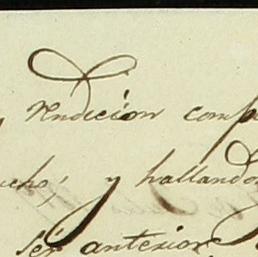 rendicion comp
ucho; y hallando
ser anterior